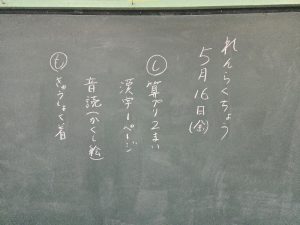 れんらくちょう
5月16日(金)
し 算プリ2まい
漢字1ページ
音読(かくし絵)
も きゅうしょく着